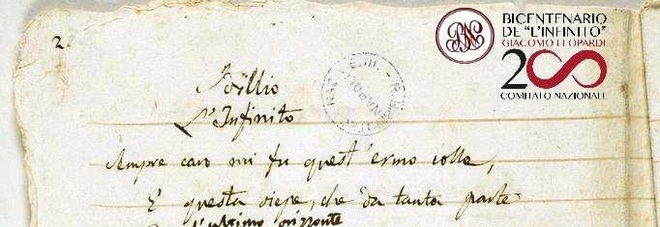 2.
Idillio
L'Infinito
Sempre caro mi fu quest'ermo colle,
E questa siepe, che da tanta parte
l'ultimo orizzonte
BN
BICENTENARIO
DE "L'INFINITO"
GIACOMO LEOPARDI
200
COMITATO NAZIONALE